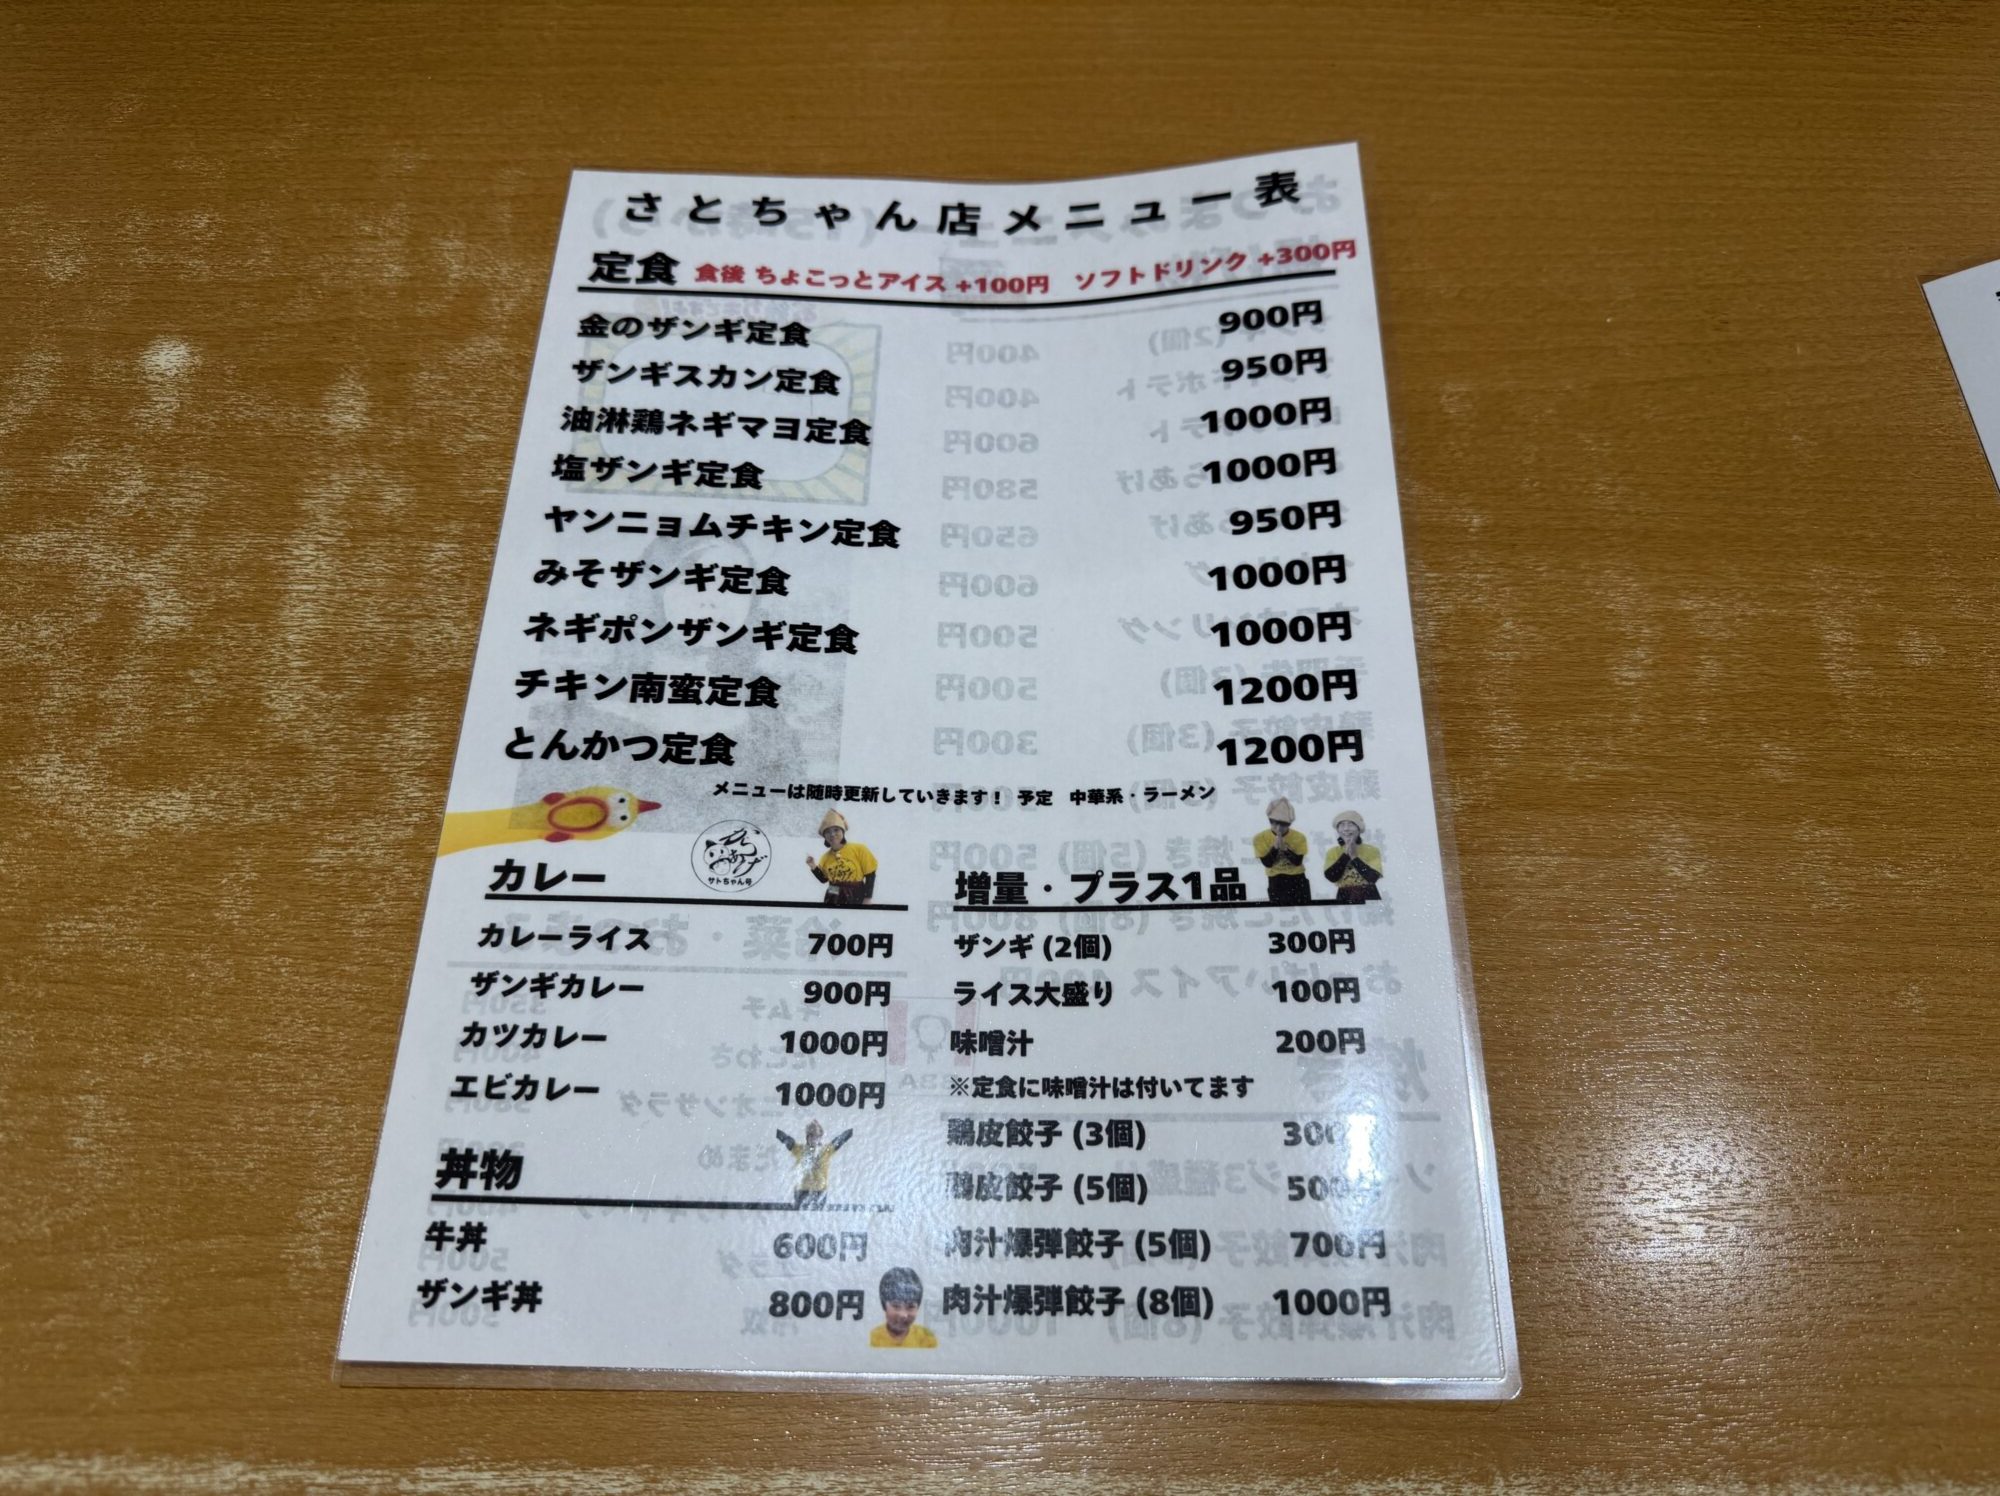 さとちゃん店メニュー表
定食 食後 ちょこっとアイス +100円 ソフトドリンク +300円
金のザンギ定食 900円
ザンギスカン定食 950円
油淋鶏ネギマヨ定食 1000円
塩ザンギ定食 1000円
ヤンニョムチキン定食 950円
みそザンギ定食 1000円
ネギポンザンギ定食 1000円
チキン南蛮定食 1200円
とんかつ定食 1200円
メニューは随時更新していきます！ 予定 中華系・ラーメン
からあげ
サトちゃん号
カレー
カレーライス 700円
ザンギカレー 900円
カツカレー 1000円
エビカレー 1000円
丼物
牛丼 600円
ザンギ丼 800円
増量・プラス1品
ザンギ (2個) 300円
ライス大盛り 100円
味噌汁 200円
※定食に味噌汁は付いてます
鶏皮餃子 (3個) 300円
鶏皮餃子 (5個) 500円
肉汁爆弾餃子 (5個) 700円
肉汁爆弾餃子 (8個) 1000円